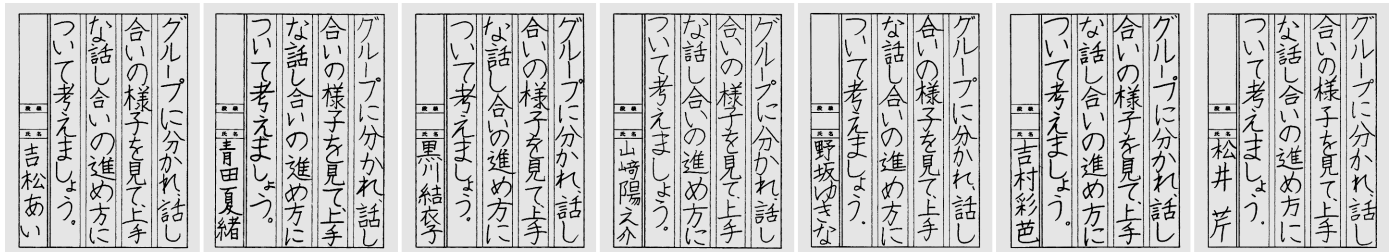 グループに分かれ、話し
合いの様子を見て、上手
な話し合いの進め方に
ついて考えましょう。
段級
氏名
吉松あい
グループに分かれ、話し
合いの様子を見て、上手
な話し合いの進め方に
ついて考えましょう。
段級
氏名
青田夏緒
グループに分かれ、話し
合いの様子を見て、上手
な話し合いの進め方に
ついて考えましょう。
段級
氏名
黒川結衣子
グループに分かれ、話し
合いの様子を見て、上手
な話し合いの進め方に
ついて考えましょう。
段級
氏名
山﨑陽之介
グループに分かれ、話し
合いの様子を見て、上手
な話し合いの進め方に
ついて考えましょう。
段級
氏名
野坂ゆきな
グループに分かれ、話し
合いの様子を見て、上手
な話し合いの進め方に
ついて考えましょう。
段級
氏名
吉村彩芭
グループに分かれ、話し
合いの様子を見て、上手
な話し合いの進め方に
ついて考えましょう。
段級
氏名
松井芹